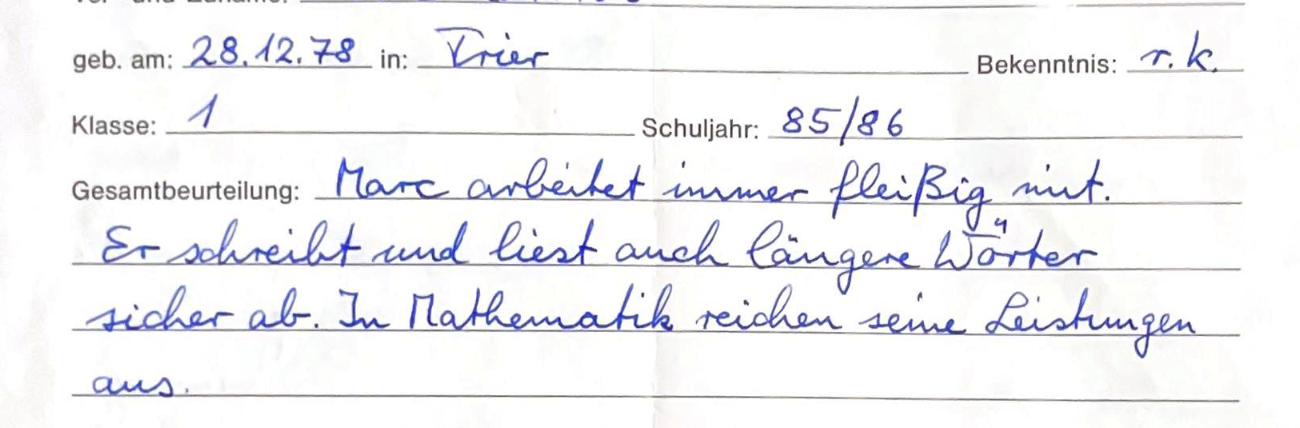 geb. am: 28.12.78 in: Trier Bekenntnis: r.k.
Klasse: 1 Schuljahr: 85/86
Gesamtbeurteilung: Marc arbeitet immer fleißig mit.
Er schreibt und liest auch längere Wörter
sicher ab. In Mathematik reichen seine Leistungen
aus.